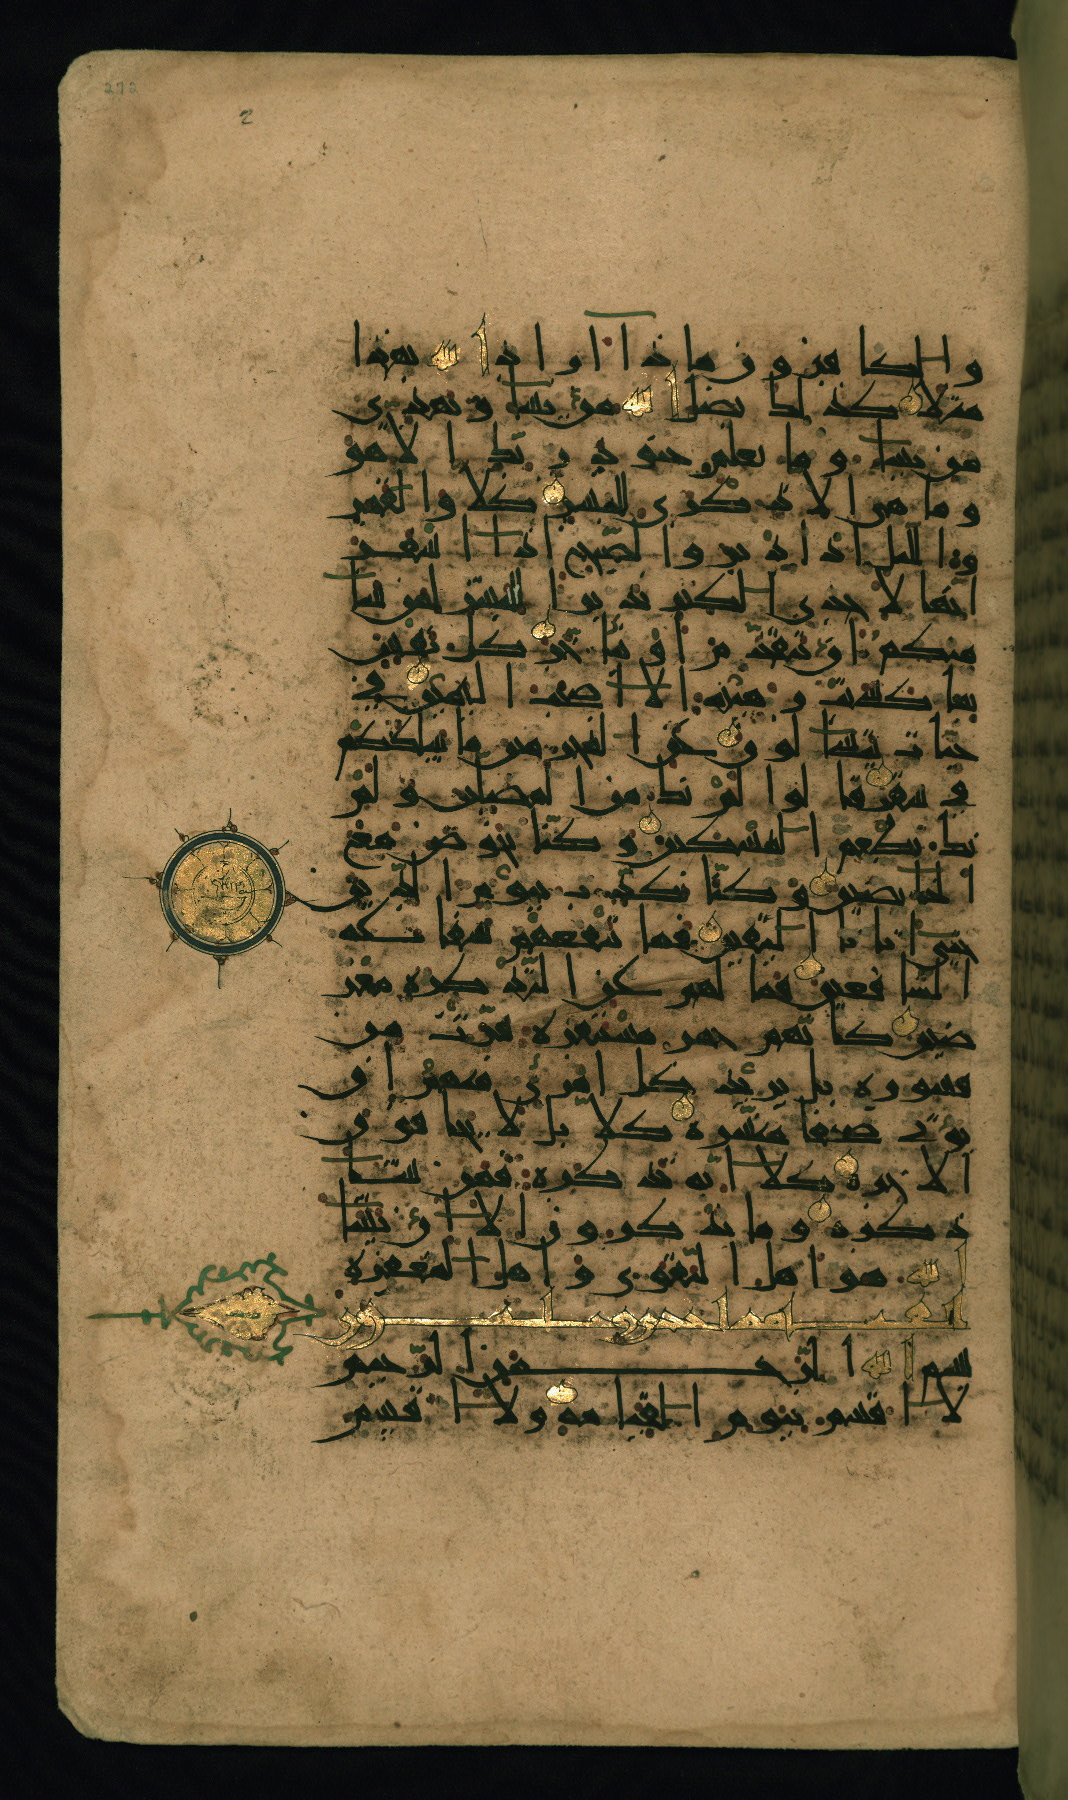 272
2
والكافرون ماذا اراد الله بهذا
مثلا كذلك يضل الله من يشا ويهدي
من يشا وما يعلم جنود ربك الا هو
وما هي الا ذكرى للبشر كلا والقمر
والليل اذ ادبر والصبح اذا اسفر
انها لاحدى الكبر نذيرا للبشر لمن شا
منكم ان يتقدم او يتاخر كل نفس
بما كسبت رهينه الا اصحب اليمين في
جنات يتسالون عن المجرمين ما سلككم
في سقر قالوا لم نك من المصلين ولم
نك نطعم المسكين وكنا نخوض مع
الخايضين وكنا نكذب بيوم الدين
حتى اتانا اليقين فما تنفعهم شفاعه
الشافعين فما لهم عن التذكرة معر
ضين كانهم حمر مستنفرة فرت من
قسورة بل يريد كل امرئ منهم ان
يوتى صحفا منشرة كلا بل لا يخافون
الاخرة كلا انه تذكرة فمن شا
ذكره وما يذكرون الا ان يشا
الله هو اهل التقوى واهل المغفرة
بسم الله الرحمن الرحيم
لا اقسم بيوم القيامة ولا اقسم